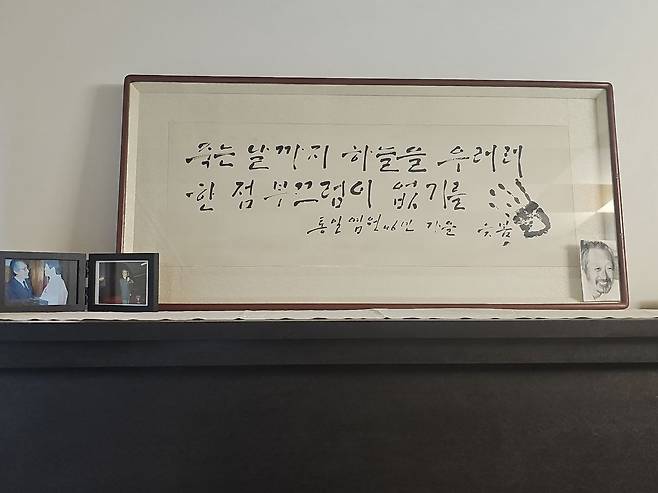 죽는 날까지 하늘을 우러러
한 점 부끄럼이 없기를
통일염원 46년 가을 늦봄